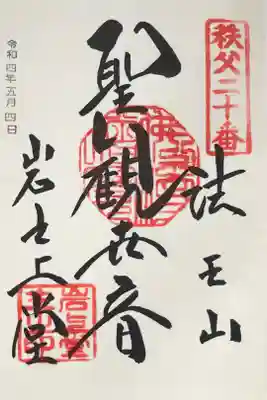 秩父二十番
法王山
聖観世音
岩之上堂
令和四年五月四日